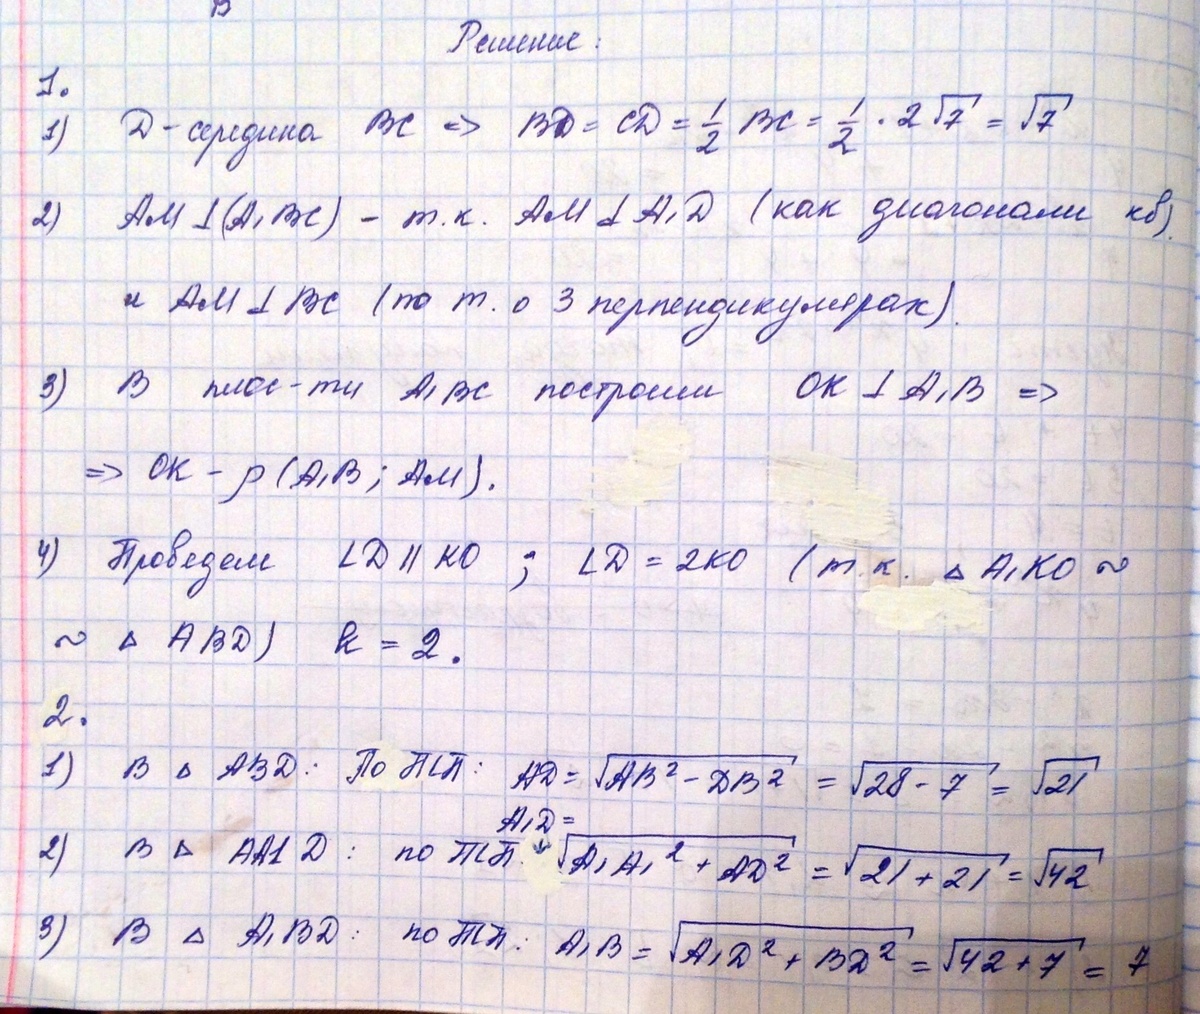 В
Решение:
1.
1) D-середина BC => BD = CD = 1/2 BC = 1/2 · 2√7 = √7
2) AM ⊥ (A₁BC) - т.к. AM ⊥ A₁D (как диагонали кв).
и AM ⊥ BC (по т. о 3 перпендикулярах).
3) В плос-ти A₁BC построим OK ⊥ A₁B =>
=> OK - ρ(A₁B; AM).
4) Проведем LD || KO ; LD = 2KO (т.к. △ A₁KO ~
~ △ ABD) k = 2.
2.
1) В △ ABD: По ТП: AD = √(AB² - DB²) = √(28 - 7) = √21
A₁D =
2) В △ AA1D: по ТП: √(A₁A₁² + AD²) = √(21 + 21) = √42
3) В △ A₁BD: по ТП: A₁B = √(A₁D² + BD²) = √(42 + 7) = 7